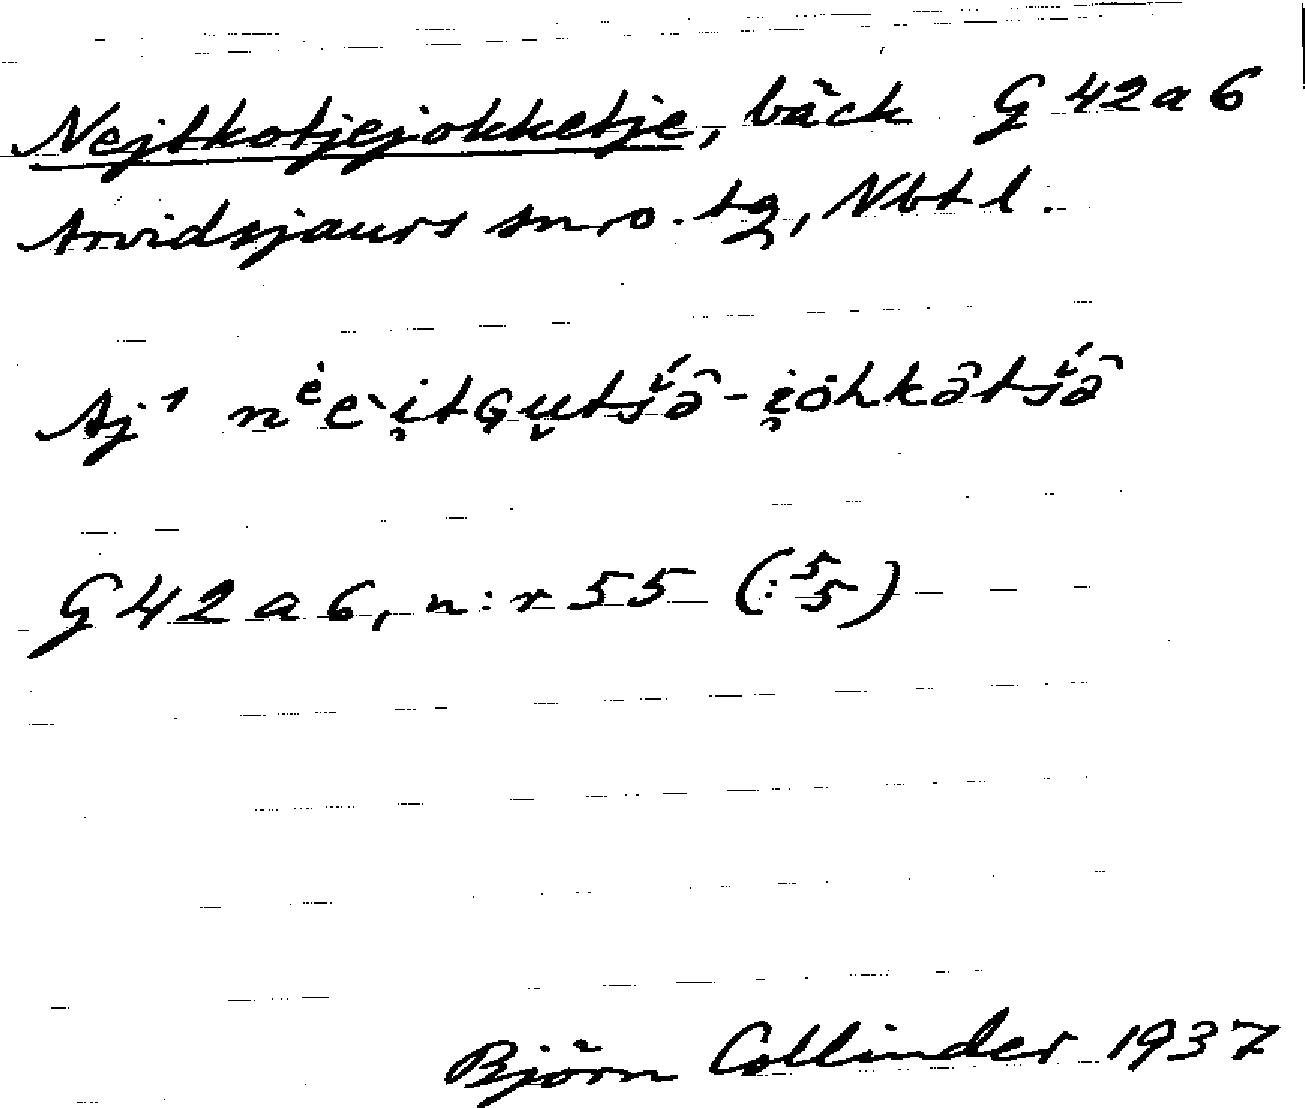 Nejtkotjejokketje, bäck G 42 a 6
Arvidsjaurs sn o. tg, Nbt l.
Aj¹ nᵉ̇èi̯tGu̯tś̌â-i̯ȯhkâtś̌â
G 42 a 6, n:r 55 (:5/5)
Björn Collinder 1937